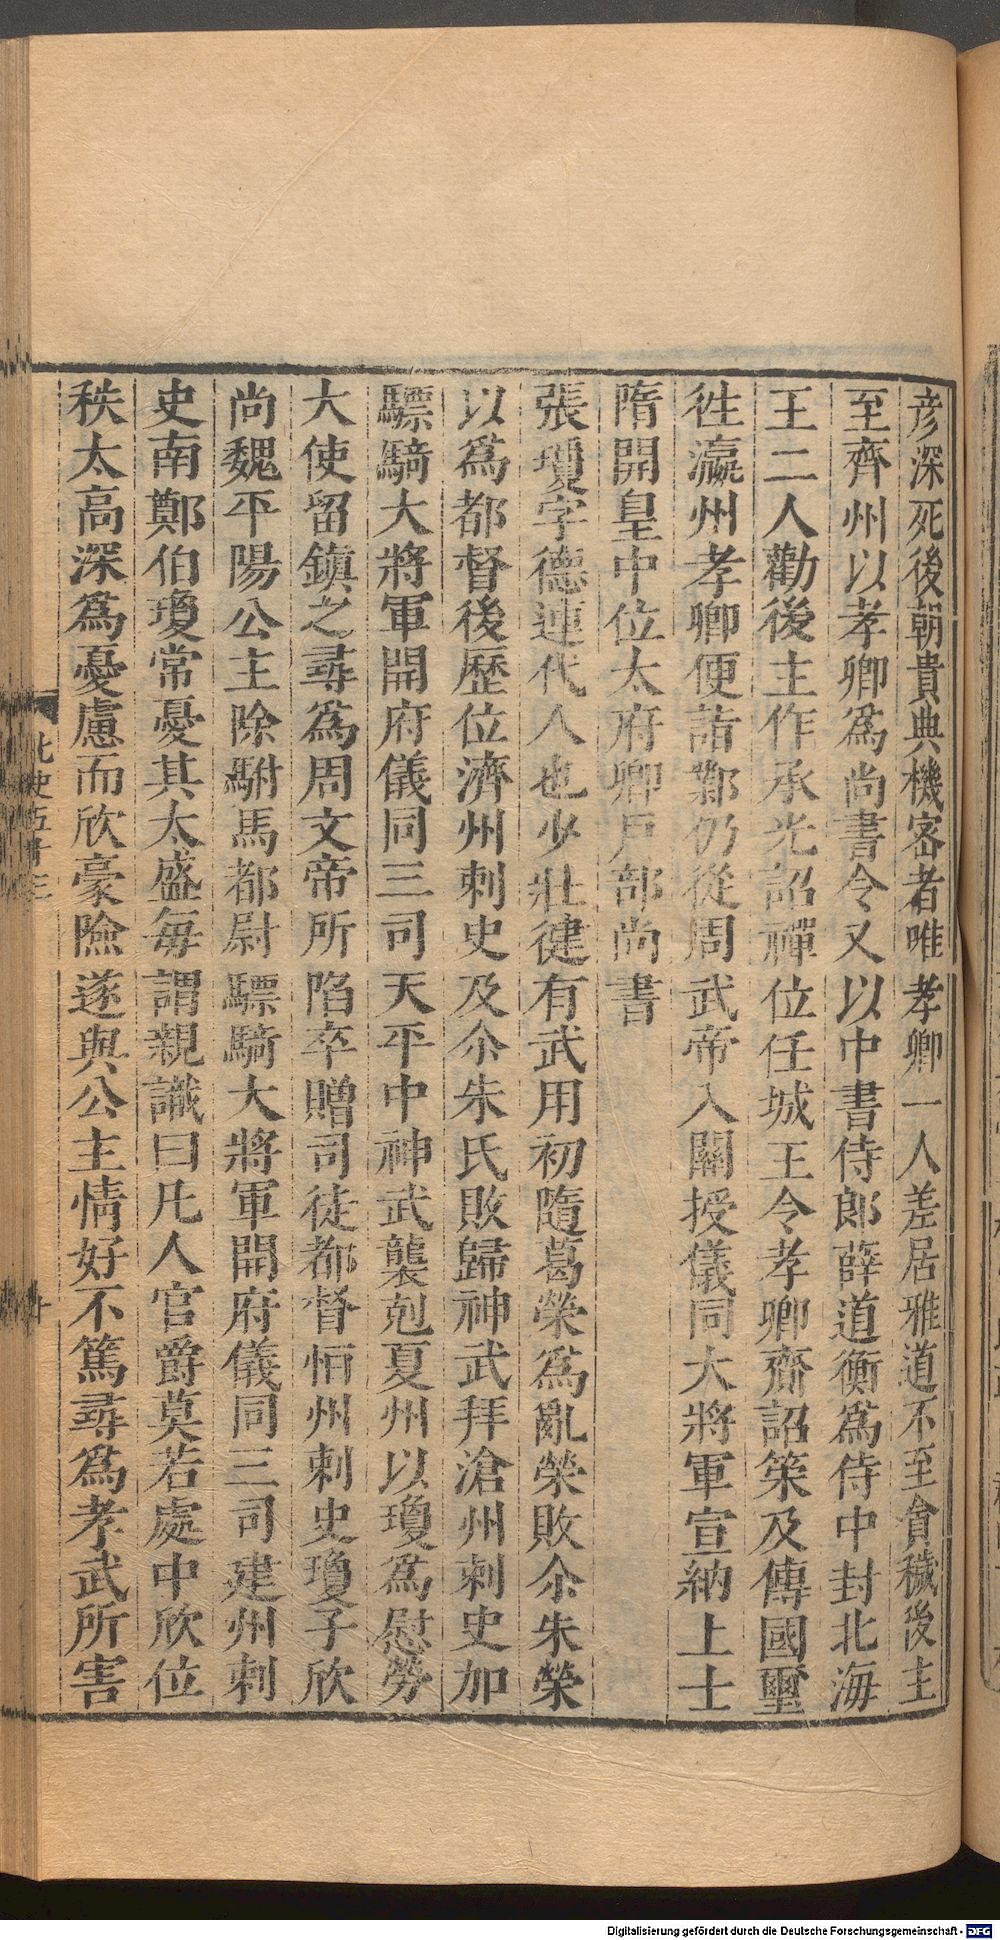 彦深死後朝貴典機密者唯孝卿一人差居雅道不至貪穢後主
至齊州以孝卿爲尚書令又以中書侍郎薛道衡爲侍中封北海
王二人勸後主作承光詔禪位任城王令孝卿齎詔策及傳國璽
徃瀛州孝卿便詣鄴仍從周武帝入關授儀同大將軍宣納上士
隋開皇中位太府卿戸部尚書
張瓊字德連代人也少壯健有武用初隨葛榮爲亂榮敗尒朱榮
以爲都督後歷位濟州刺史及尒朱氏敗歸神武拜滄州刺史加
驃騎大將軍開府儀同三司天平中神武襲剋夏州以瓊爲慰勞
大使留鎮之尋爲周文帝所陷卒贈司徒都督恒州刺史瓊子欣
尚魏平陽公主除駙馬都尉驃騎大將軍開府儀同三司建州刺
史南鄭伯瓊常憂其太盛每謂親識曰凡人官爵莫若處中欣位
秩太高深爲憂慮而欣豪險遂與公主情好不篤尋爲孝武所害
北史五十三
Digitalisierung gefördert durch die Deutsche Forschungsgemeinschaft - DFG